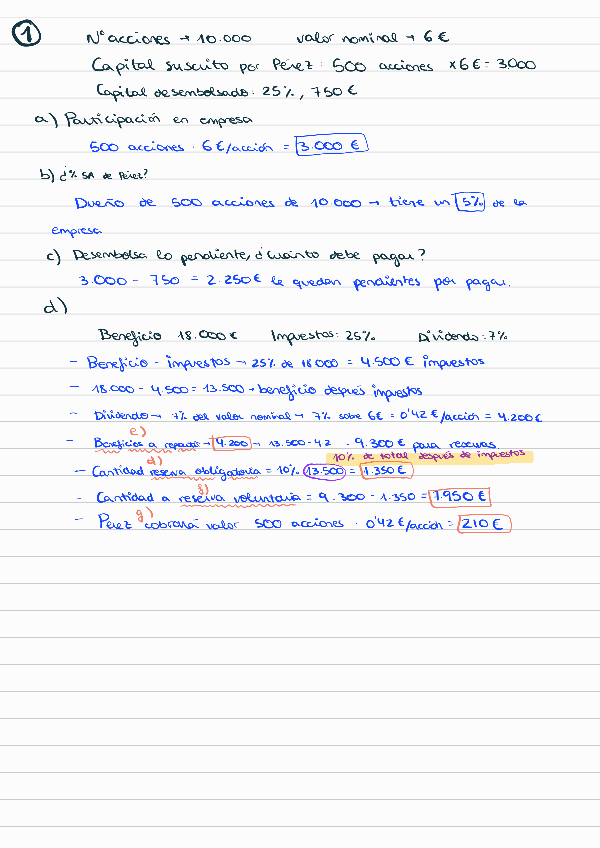 1
Nº acciones → 10.000 valor nominal → 6 €
Capital suscrito por Pérez: 500 acciones x6€ = 3000
Capital desembolsado: 25%, 750 €
a) Participación en empresa
500 acciones · 6€/acción = 3.000 €
b) ¿% SA de Pérez?
Dueño de 500 acciones de 10.000 → tiene un 5% de la
empresa
c) Desembolsa lo pendiente, ¿cuánto debe pagar?
3.000 - 750 = 2.250€ le quedan pendientes por pagar.
d)
Beneficio 18.000 € Impuestos: 25% Dividendo: 7%
- Beneficio - impuestos → 25% de 18000 = 4.500 € impuestos
- 18.000 - 4.500 = 13.500 → beneficio después impuestos
- Dividendo → 7% del valor nominal → 7% sobre 6€ = 0'42 €/acción = 4.200€
e)
- Beneficios a repartir → 4.200 → 13.500 - 42 · 9.300 € para reservas
10% de total después de impuestos
d)
- Cantidad reserva obligatoria = 10% 13.500 = 1.350 €
f)
- Cantidad a reserva voluntaria = 9.300 - 1.350 = 7.950 €
g)
- Pérez cobrará valor 500 acciones · 0'42 €/acción = 210 €